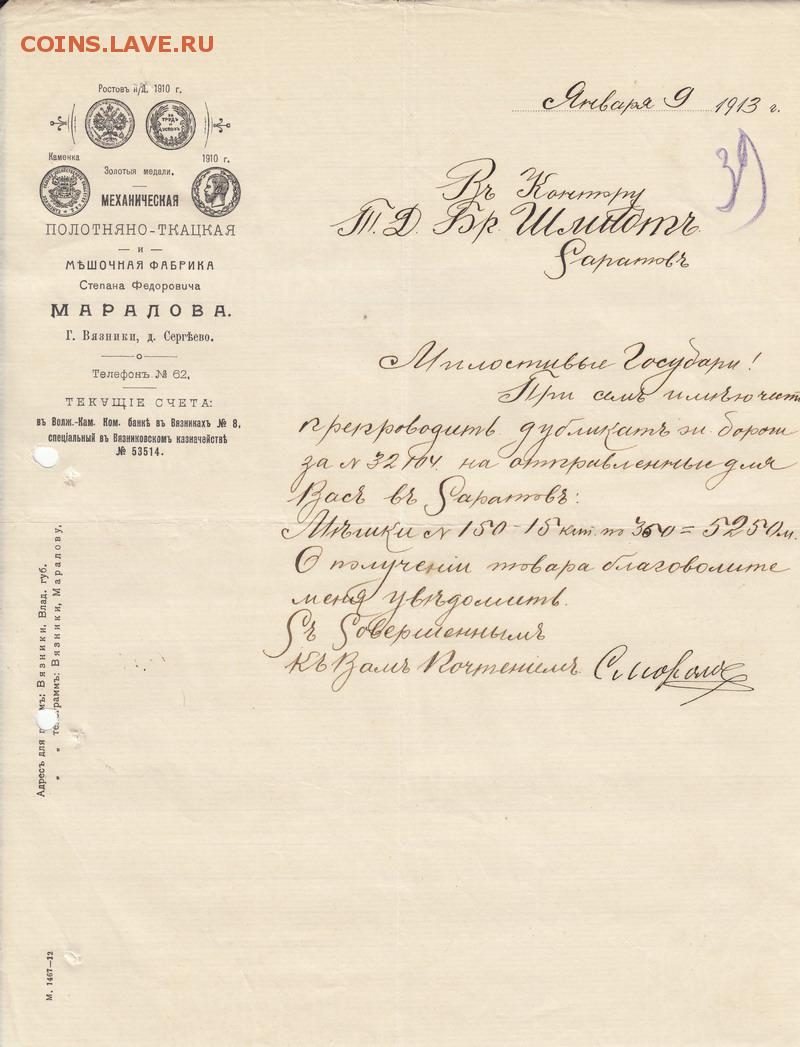 COINS.LAVE.RU
Ростовъ н/Д. 1910 г.
ЗА ТРУДЪ И
Каменка 1910 г.
Золотыя медали.
МЕХАНИЧЕСКАЯ
ПОЛОТНЯНО-ТКАЦКАЯ
— и —
МѢШОЧНАЯ ФАБРИКА
Степана Федоровича
МАРАЛОВА.
Г. Вязники, д. Сергѣево.
Телефонъ № 62,
ТЕКУЩІЕ СЧЕТА:
въ Волж.-Кам. Ком. банкѣ въ Вязникахъ № 8,
спеціальный въ Вязниковскомъ казначействѣ
№ 53514.
Января 9 1913 г.
39)
Въ Контору
Т. Д. Бр. Шмидтъ.
Саратовъ
Милостивые Государи!
При семъ имѣю честь
препроводить дубликатъ ж. дороги
за N 32104 на отправленные для
Васъ въ Саратовъ:
Мѣшки N 150 - 15 кип. по 350 = 5250 м.
О полученіи товара благоволите
меня увѣдомить.
Съ Совершеннымъ
къ Вамъ Почтеніемъ
Адресъ для Вязники, Влад. губ.
" " Вязники, Маралову.
М. 1467—12